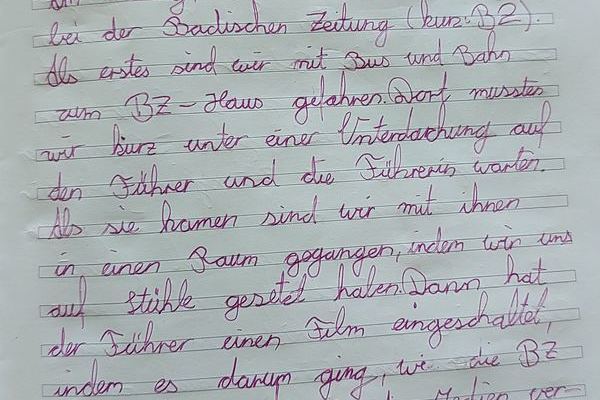 bei der Badischen Zeitung (kurz: BZ).
Als erstes sind wir mit Bus und Bahn
zum BZ-Haus gefahren. Dort musstes
wir kurz unter einer Unterdachung auf
den Führer und die Führerin warten.
Als sie kamen sind wir mit ihnen
in einen Raum gegangen, indem wir uns
auf Stühle gesetzt haben. Dann hat
der Führer einen Film eingeschaltet,
indem es darum ging, wie die BZ
Medien ver-